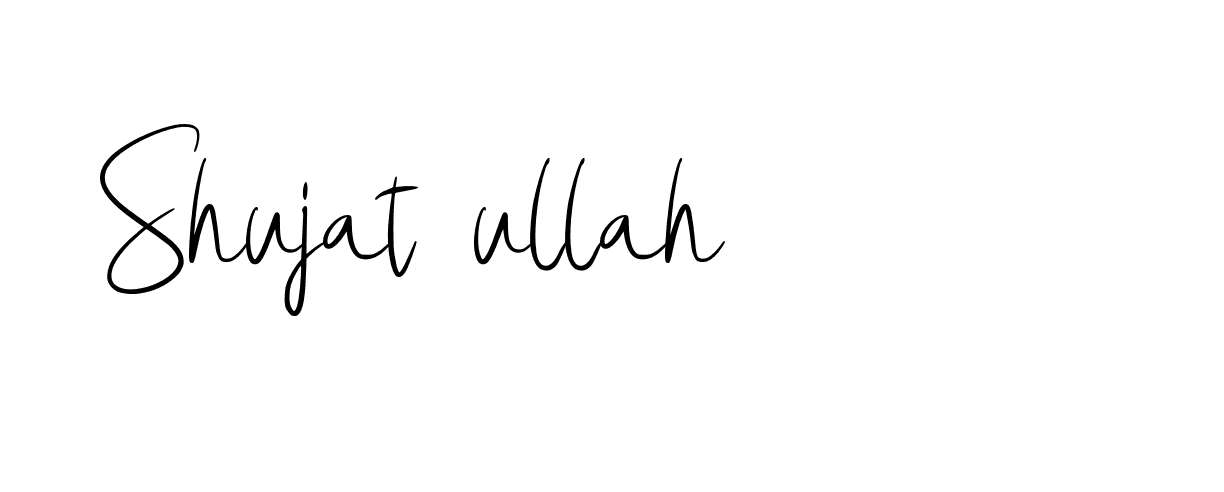 Shujat ullah